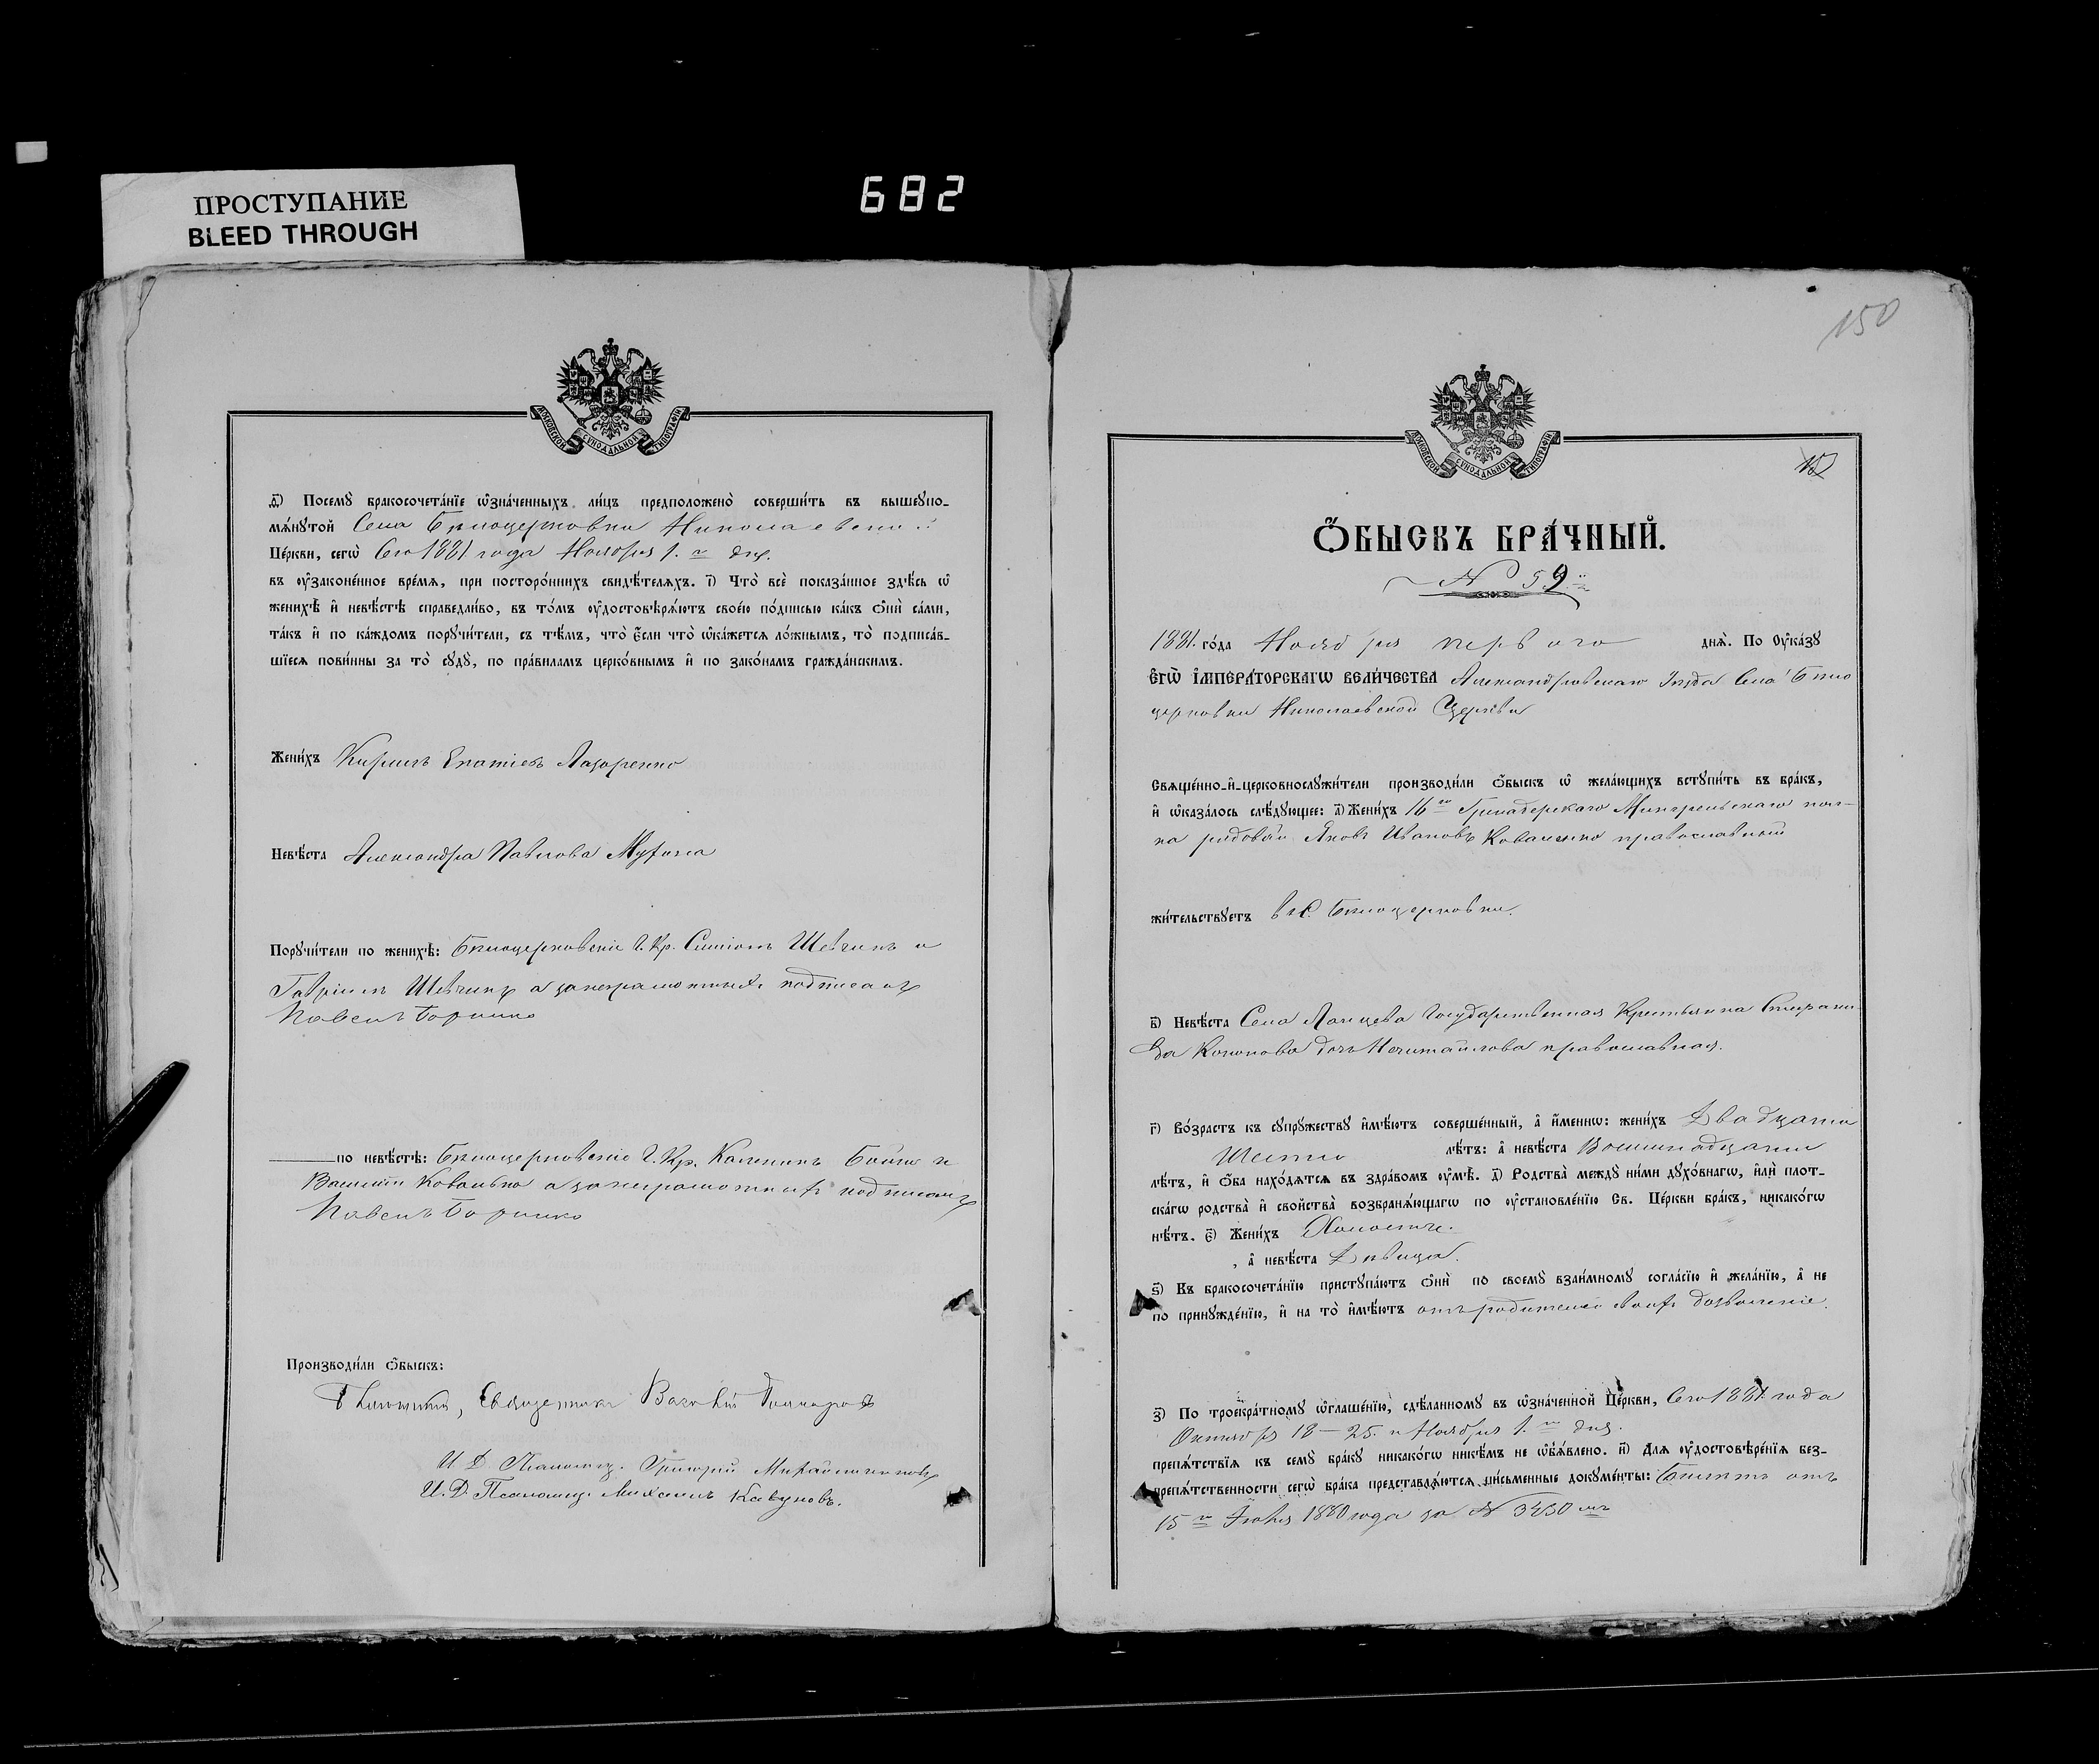 ПРОСТУПАНИЕ
BLEED THROUGH
682
МОСКОВСКОЙ СѴНОДАЛЬНОЙ ТИПОГРАФІИ
Посемꙋ̀ бракосочета́нїе ѡ҆зна́ченныхъ ли́цъ предположено̀ соверши́ть въ вышеꙋпо-
мѧ́нꙋтой Села Бѣлоцерковки Николаевской
Це́ркви, сегѡ̀ Сего 1881 года Ноября 1.го дня.
въ ᲂу҆законе́нное вре́мѧ, при посторо́ннихъ свидѣ́телѧхъ. і҃) Что̀ всѐ пока́занное здѣ́сь ѡ҆
женихѣ̀ и҆ невѣ́стѣ справедли́во, въ то́мъ ᲂу҆достовѣрѧ́ютъ свое́ю по́дписью ка́къ ѻ҆нѝ са́ми,
та́къ и҆ по ка́ждомъ порꙋчи́тели, съ тѣ́мъ, что̀ є҆́сли что̀ ѡ҆ка́жетсѧ ло́жнымъ, то̀ подписа́в-
шїесѧ пови́нны за то̀ сꙋдꙋ̀, по пра́виламъ церко́внымъ и҆ по зако́намъ гражда́нскимъ.
Жени́хъ Кирилъ Ипатіевъ Лазоренко
Невѣ́ста Александра Павлова
Порꙋчи́тели по женихѣ̀: Бѣлоцерковскіе Г. Кр. Шевчикъ и
Гавріилъ Шевчикъ а за неграмотныхъ подписался
Павелъ
по невѣ́стѣ: Бѣлоцерковскіе Г. Кр. Бойко и
Василій Ковалько а за неграмотныхъ подписался
Павелъ
Производи́ли ѻ҆́быскъ:
Священникъ
И Д Псаломщ. Григорій
И. Д. Псаломщ. Михаилъ Кавуновъ.
150
ѺБЫСКЪ БРА́ЧНЫЙ.
N 59
1881. го́да Ноября перваго днѧ̀. По ᲂу҆ка́зꙋ
Є҆ГѠ̀ И҆МПЕРА́ТОРСКАГѠ ВЕЛИ́ЧЕСТВА Александровскаго Уѣзда Села Бѣло
церковки Николаевской Церкви
Свѧще́нно-и҆-церковнослꙋжи́тели производи́ли ѻ҆́быскъ ѡ҆ жела́ющихъ встꙋпи́ть въ бра́къ,
и҆ ѡ҆каза́лось слѣ́дꙋющее: а҃) Жени́хъ 16го Гринадерскаго Мингрельскаго пол-
ка рядовой Яковъ Ивановъ Коваленко православный
жи́тельствꙋетъ в с. Бѣлоцерковки.
в҃) Невѣ́ста Села Ланцева Государственная Крестьянка Степани
да Кононова дочь Нечитайлова православная.
г҃) Во́зрастъ къ сꙋпрꙋ́жествꙋ и҆мѣ́ютъ соверше́нный, а҆ и҆́меннѡ: жени́хъ Двадцати
Шести лѣ́тъ: а҆ невѣ́ста Восимнадцати
лѣ́тъ, и҆ ѻ҆́ба нахо́дѧтсѧ въ здра́вомъ ᲂу҆мѣ̀. д҃) Родства̀ междꙋ̀ ни́ми дꙋхо́внагѡ, и҆лѝ плот-
ска́гѡ родства̀ и҆ сво́йства возбранѧ́ющагѡ по ᲂу҆становле́нїю Св. Це́ркви бра́къ, никако́гѡ
нѣ́тъ. є҃) Жени́хъ Холостъ.
, а҆ невѣ́ста Дѣвица.
ѕ҃) Къ бракосочета́нїю пристꙋпа́ютъ ѻ҆нѝ по своемꙋ̀ взаи́мномꙋ согла́сїю и҆ жела́нїю, а҆ не
по принꙋжде́нїю, и҆ на то̀ и҆мѣ́ютъ отъ родителей своихъ дозволеніе.
з҃) По троекра́тномꙋ ѡ҆глаше́нїю, сдѣ́ланномꙋ въ ѡ҆зна́ченной Це́ркви, Сего 1881. года
Октября 18 — 25. и Ноября 1.го дня.
препѧ́тствїѧ къ семꙋ̀ бра́кꙋ никако́гѡ никѣ́мъ не ѡ҆б̾ѧ́влено. и҃) Длѧ ᲂу҆достовѣре́нїѧ без-
препѧ́тственности сегѡ̀ бра́ка представлѧ́ютсѧ пи́сьменные докꙋме́нты: Билетъ отъ
15го 1880 года за N 3430мъ